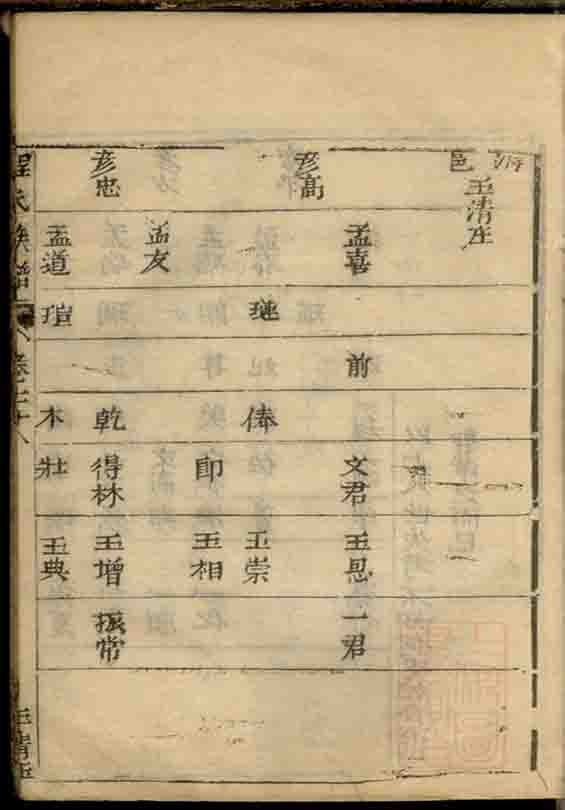 邑
玉清庄
彦高
彦忠
孟喜
孟友
孟道
继
瑄
前
俸
乾
木
文君
郎
得林
壯
玉恩
玉崇
玉相
玉增
玉典
一君
振常
程氏族譜
卷七十八
玉清庄